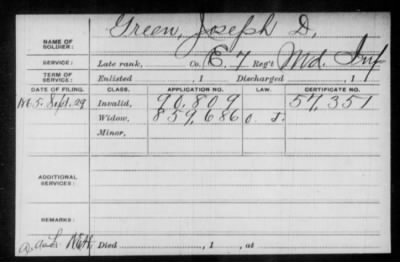 Green, Joseph D.
NAME OF SOLDIER:
SERVICE: Late rank, Co. E, 7 Reg't Md. Inf
TERM OF SERVICE: Enlisted , 1 Discharged , 1
DATE OF FILING. CLASS. APPLICATION NO. LAW. CERTIFICATE NO.
Sept. 29 Invalid, 90,809 57,351
Widow, 859,686
Minor,
ADDITIONAL SERVICES:
REMARKS:
Died , 1 , at